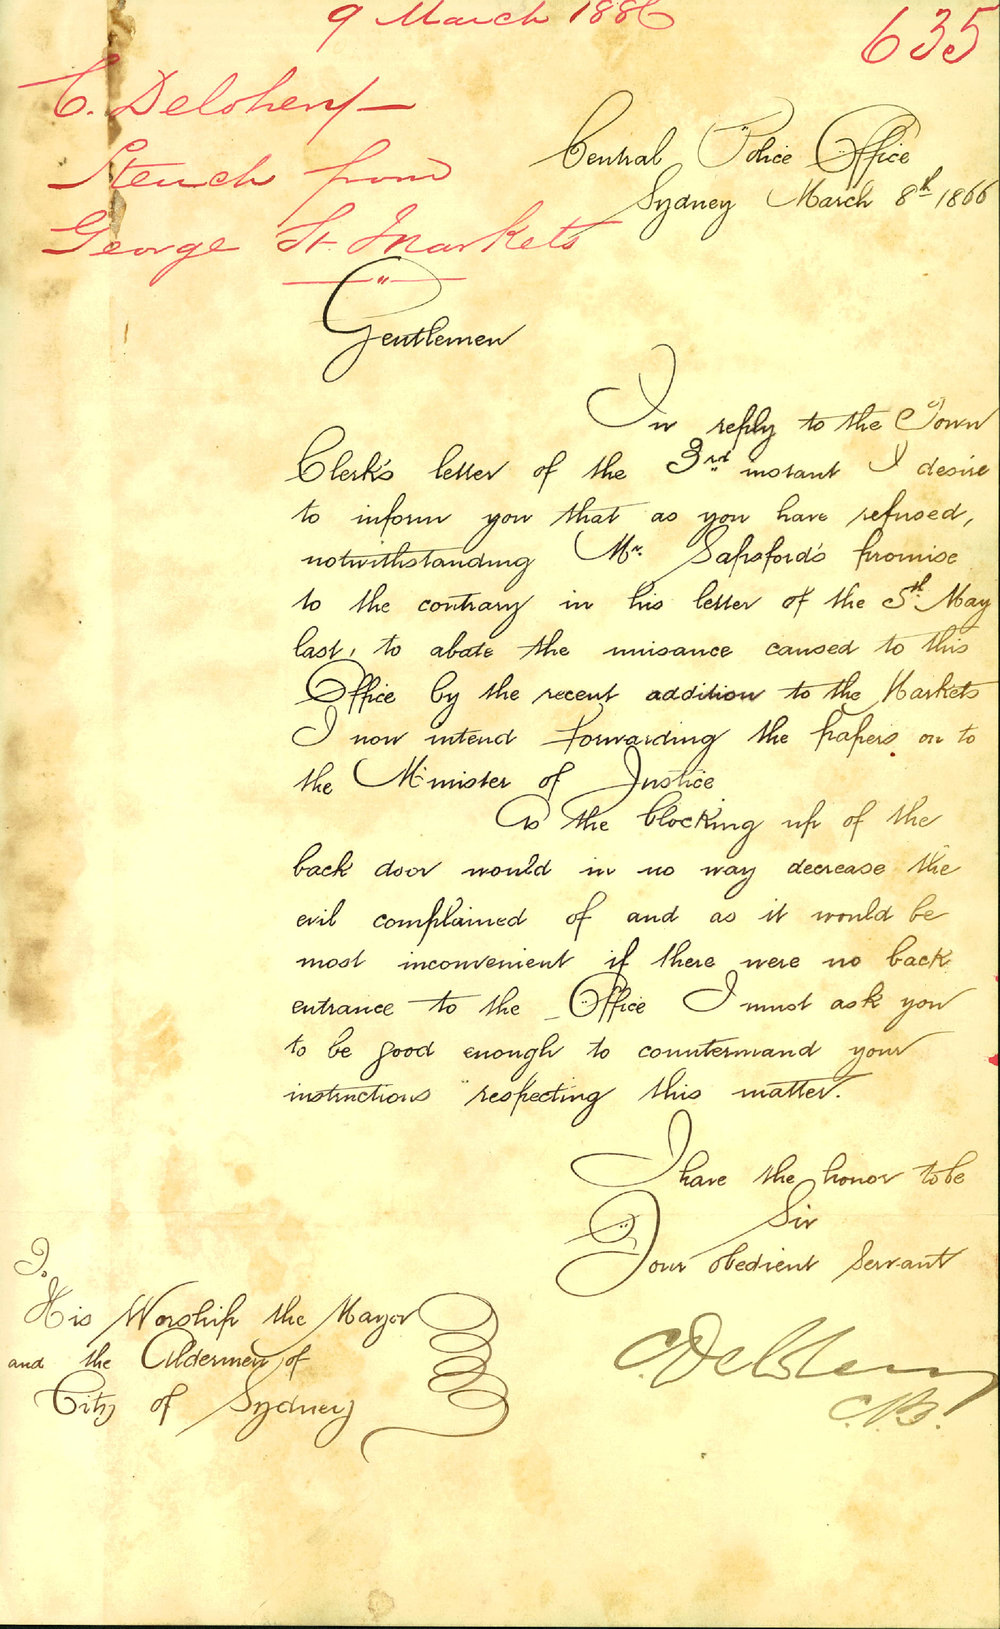 9 March 1886
635
C. Delohery —
Stench from
George St. Markets
Central Police Office
Sydney March 8th 1886
Gentlemen
In reply to the Town
Clerk's letter of the 3rd instant I desire
to inform you that as you have refused,
notwithstanding Mr. Sapsford's promise
to the contrary in his letter of the 5th May
last, to abate the nuisance caused to this
Office by the recent addition to the Markets
I now intend Forwarding the papers on to
the Minister of Justice
As the blocking up of the
back door would in no way decrease the
evil complained of and as it would be
most inconvenient if there were no back
entrance to the Office I must ask you
to be good enough to countermand your
instructions respecting this matter.
I have the honor to be
Sir
Your obedient Servant
C. Delohery
To
His Worship the Mayor
and the Aldermen of
City of Sydney